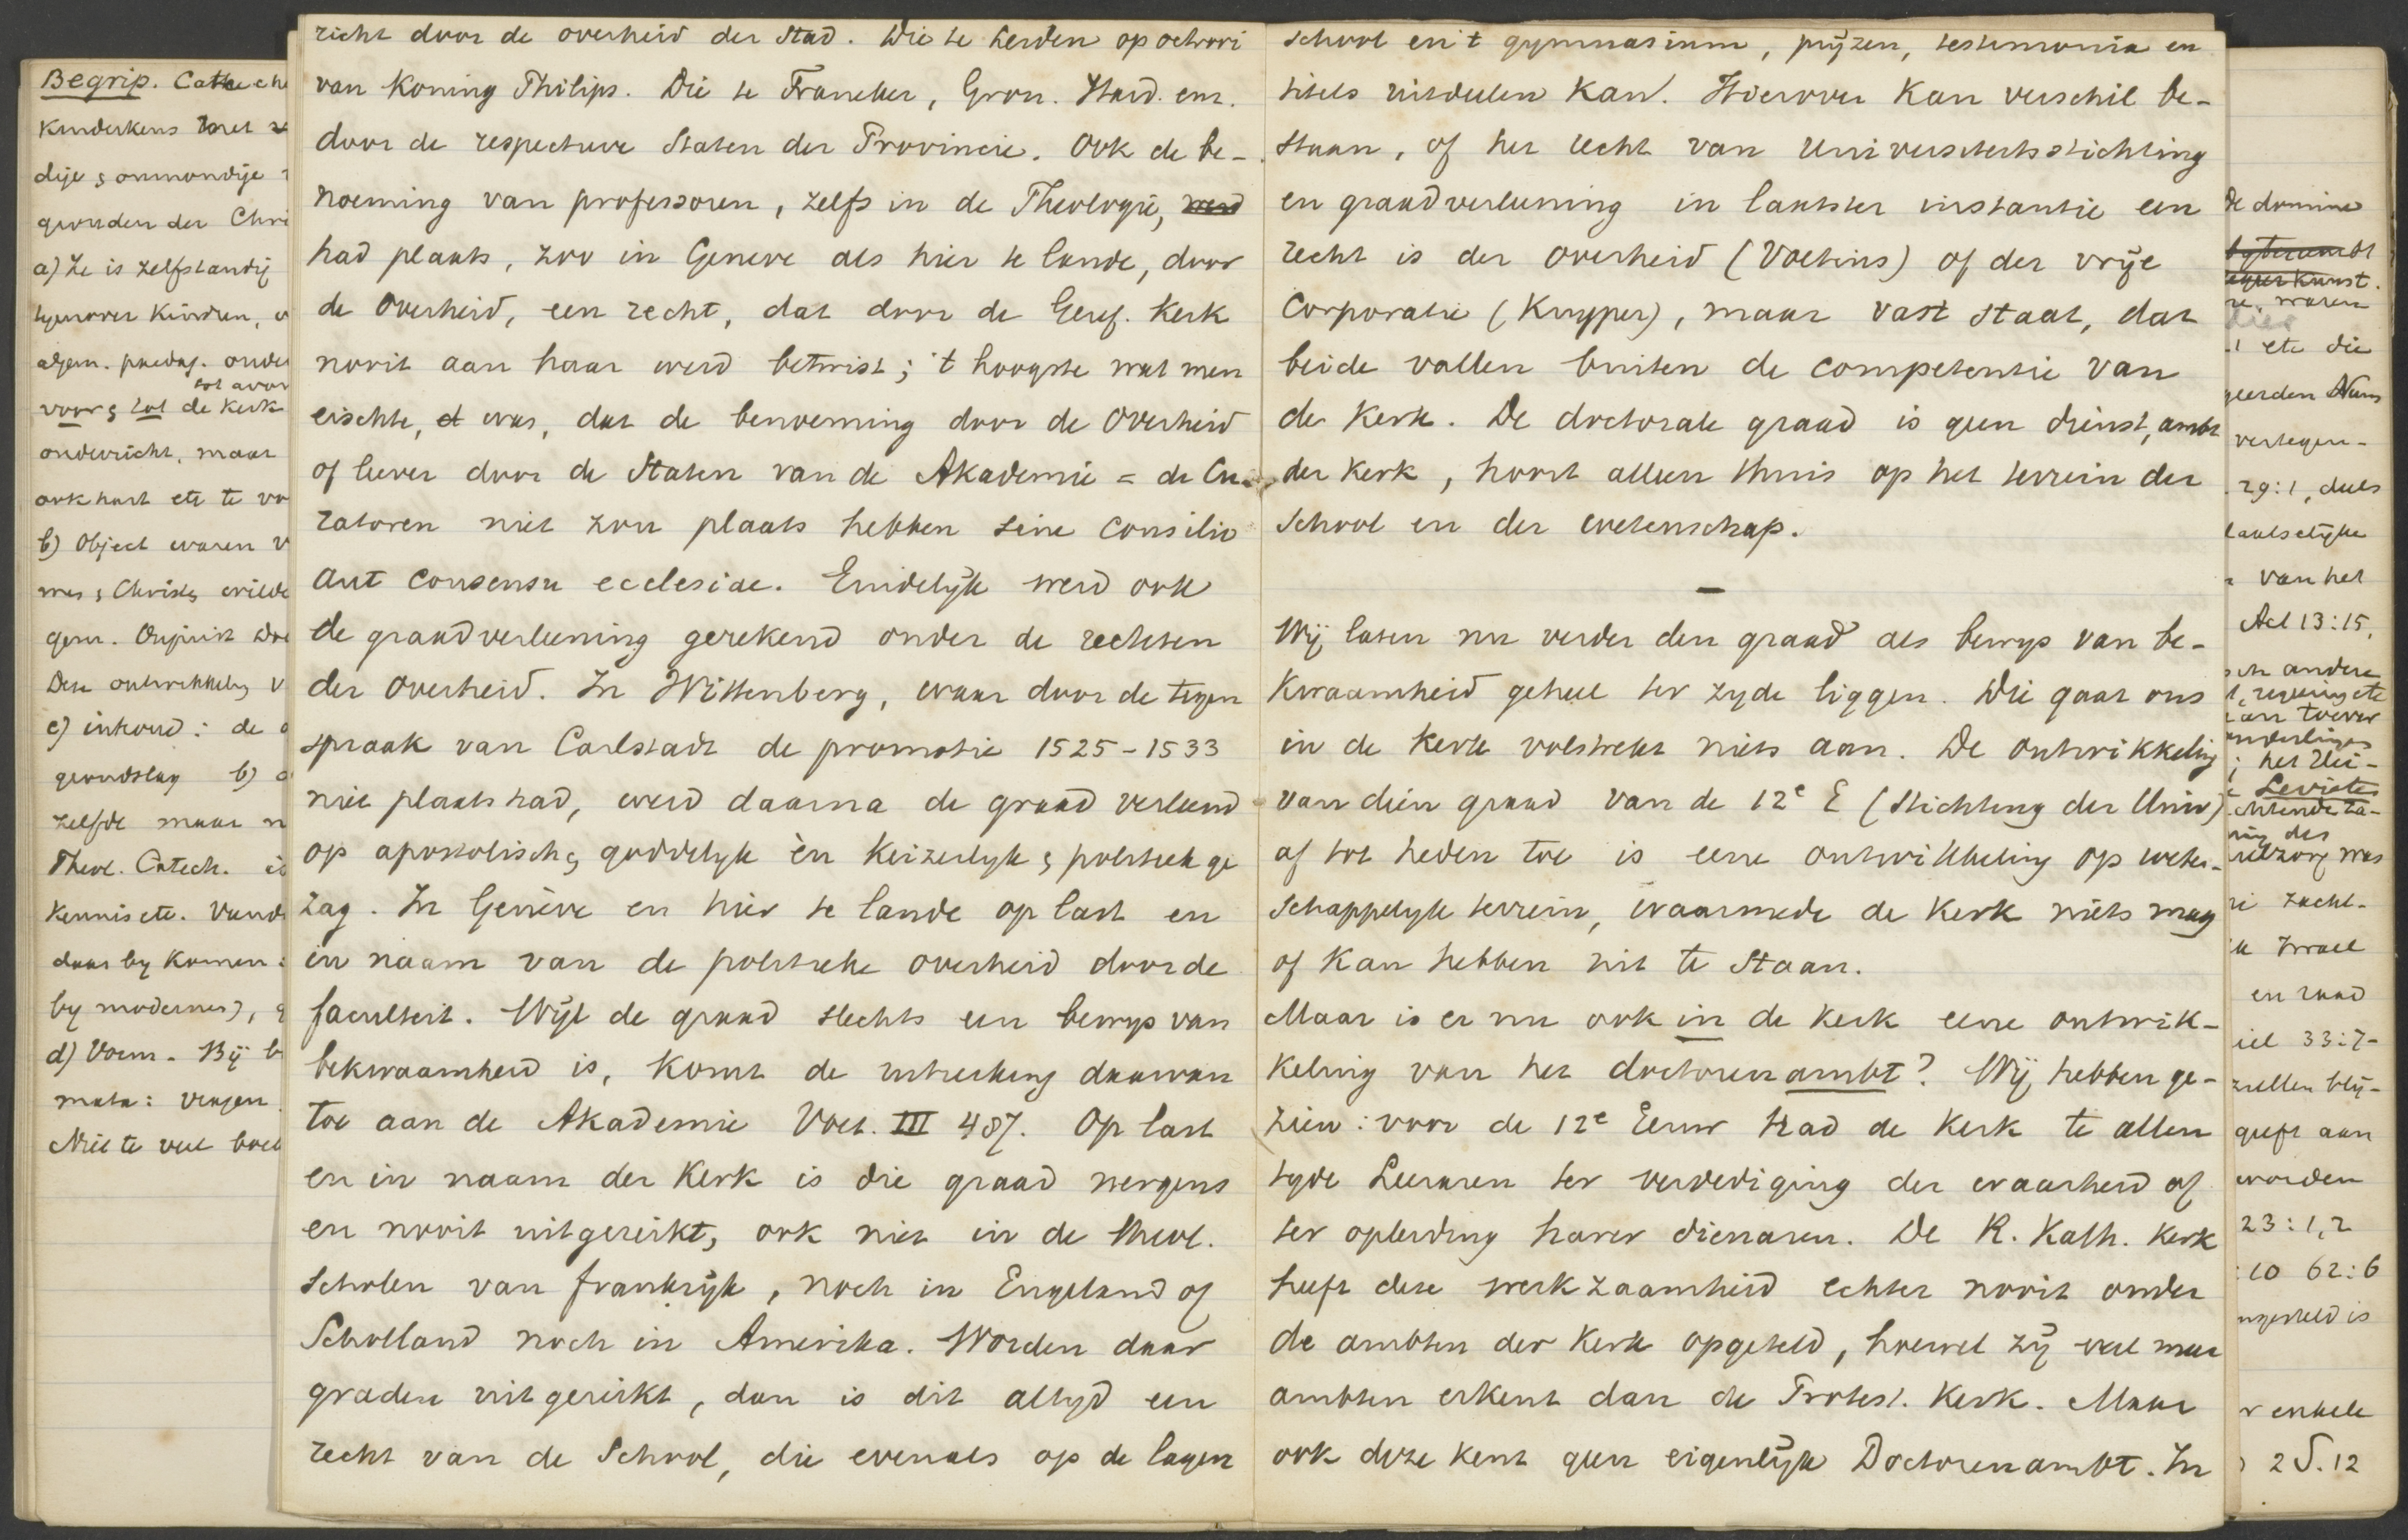 Begrip. Catheche
Kinderkens met
dije & onmondije
gronden der Chri
a) Ze is zelfstandij
tegenover kinderen,
algem. paedag. onder
tot avon
voor & tot de kerk
onderricht, maar
ook hart etc te vo
b) Object waren v
mes & Christus wilde
gem.
Deze ontwikkeling v
c) inhoud: de
grondslag b)
zelfde maar n
Theol. Catech. is
Kennis etc.
daar by komen:
by modernes),
d) Vorm. Bij b
mata: vragen
Niet te veel
richt door de overheid der Stad. Die te Leiden op octrooi
van Koning Philips. Die te Franeker, Gron. Hard. enz.
door de respectieve Staten der Provincie. Ook de be-
noeming van professoren, zelfs in de Theologie, werd
had plaats, zoo in Geneve als hier te lande, door
de Overheid, een recht, dat door de Geref. Kerk
nooit aan haar werd betwist; 't hoogste wat men
eischte, was, dat de benoeming door de Overheid
of liever door de Staten van de Akademie = de Cu-
ratoren niet zou plaats hebben sine consilio
aut consensu ecclesiae. Eindelijk werd ook
de graadverleening gerekend onder de rechten
der Overheid. In Wittenberg, waar door de tegen
spraak van Carlstadt de promotie 1525-1533
niet plaats had, werd daarna de graad verleend
op apostolisch & goddelyk èn Keizerlyk & politiek ge
zag. In Genève en hier te lande op last en
in naam van de politieke overheid door de
faculteit. Wijl de graad slechts een bewys van
bekwaamheid is, komt de uitreiking daarvan
toe aan de Akademie Voet. III 487. Op last
en in naam der Kerk is die graad nergens
en nooit uitgereikt, ook niet in de theol.
Scholen van frankrijk, noch in Engeland of
Schotland noch in Amerika. Worden daar
graden uitgereikt, dan is dit altyd een
recht van de School, die evenals op de lagere
school en 't gymnasium, prijzen, testimonia en
titels uitdeelen kan. Hierover kan verschil be-
staan, of het recht van Universiteitsstichting
en graadverleening in laatster instantie een
recht is der Overheid (Voetius) of der vrije
Corporatie (Kuyper), maar vast staat, dat
beide vallen buiten de competentie van
de Kerk. De doctorale graad is geen dienst, ambt
der Kerk, hoort alleen thuis op het terrein der
School en der wetenschap.
—
Wij laten nu verder den graad als bewys van be-
kwaamheid geheel ter zyde liggen. Die gaat ons
in de Kerk volstrekt niets aan. De ontwikkeling
van dien graad van de 12e E (Stichting der Univ)
af tot heden toe is eene ontwikkeling op weten-
schappelyk terrein, waarmede de Kerk niets mag
of kan hebben uit te Staan.
Maar is er nu ook in de Kerk eene ontwik-
keling van het doctorenambt? Wij hebben ge-
zien: voor de 12e Eeuw had de Kerk te allen
tyde Leeraren ter verdediging der waarheid of
ter opleiding harer dienaren. De R. Kath. Kerk
heeft deze werkzaamheid echter nooit onder
de ambten der Kerk opgeteld, hoewel zij veel meer
ambten erkent dan de Protest. Kerk. Maar
ook deze kent geen eigenlijk Doctorenambt. In
de domine
kunst.
re. waren
hier
etc die
geerden Num
vertegen-
29:1, deels
laatselijke
van het
Act 13:15,
sch andere
regeering etc
toever
; het Uit-
Levieten
ing des
zorg was
zacht-
Israel
en raad
iel 33:7-
zullen blij-
geeft aan
worden
23:1,2
:10 62:6
ngesteld is
r enkele
2 S. 12